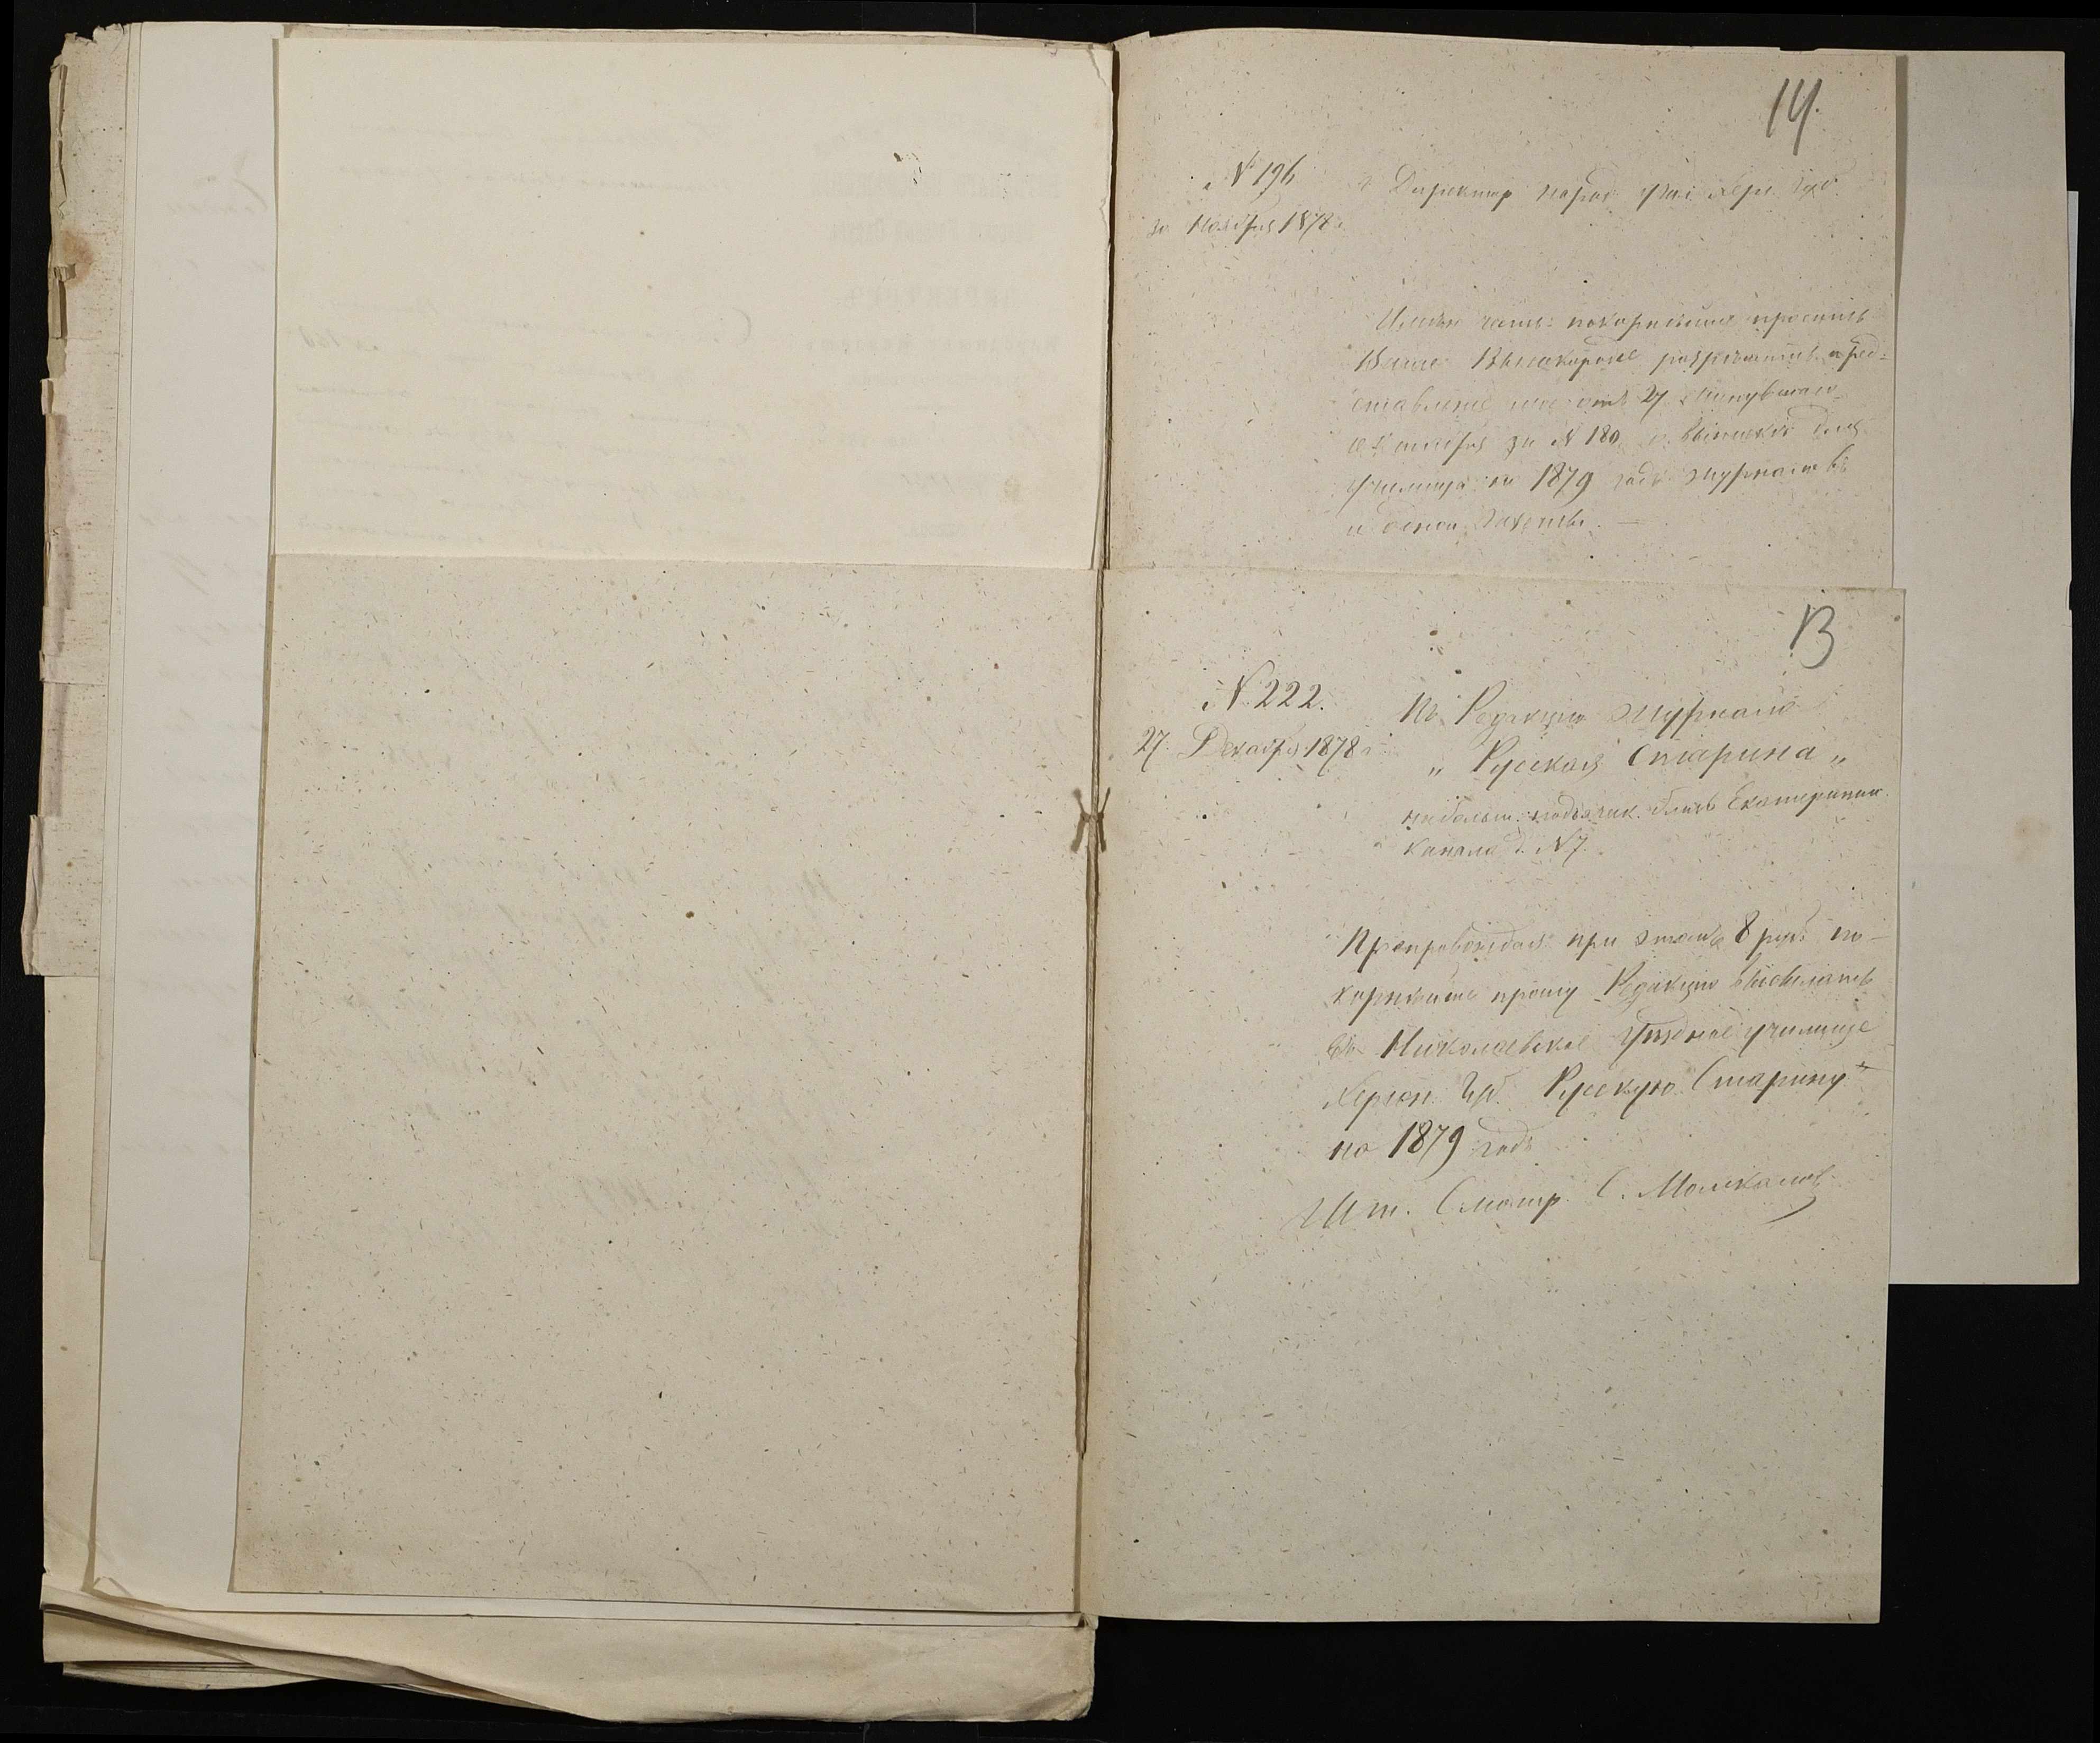 14.
№ 196
30 Ноября 1878 г.
г. Директор. народ. учил. Херс. Губ.
Имѣю честь покорнѣйше просить
Ваше Высокородіе разрѣшить пред-
ставленіе мое отъ 27 минувшаго
октября за № 180 о выпискѣ для
училища на 1879 годъ журналовъ
и одной газеты. —
13
№ 222.
27 Декабря 1878 г.
Въ Редакцію журнала
„Русская Старина„
на больш. подъяч. близъ Екатеринин.
канала д. № 7.
Препровождая при этомъ 8 руб. по-
корнѣйше прошу Редакцію высылать
въ Николаевское уѣздное училище
Херсон. Губ. Русскую Старину"
на 1879 годъ
Шт. Смотр. С.